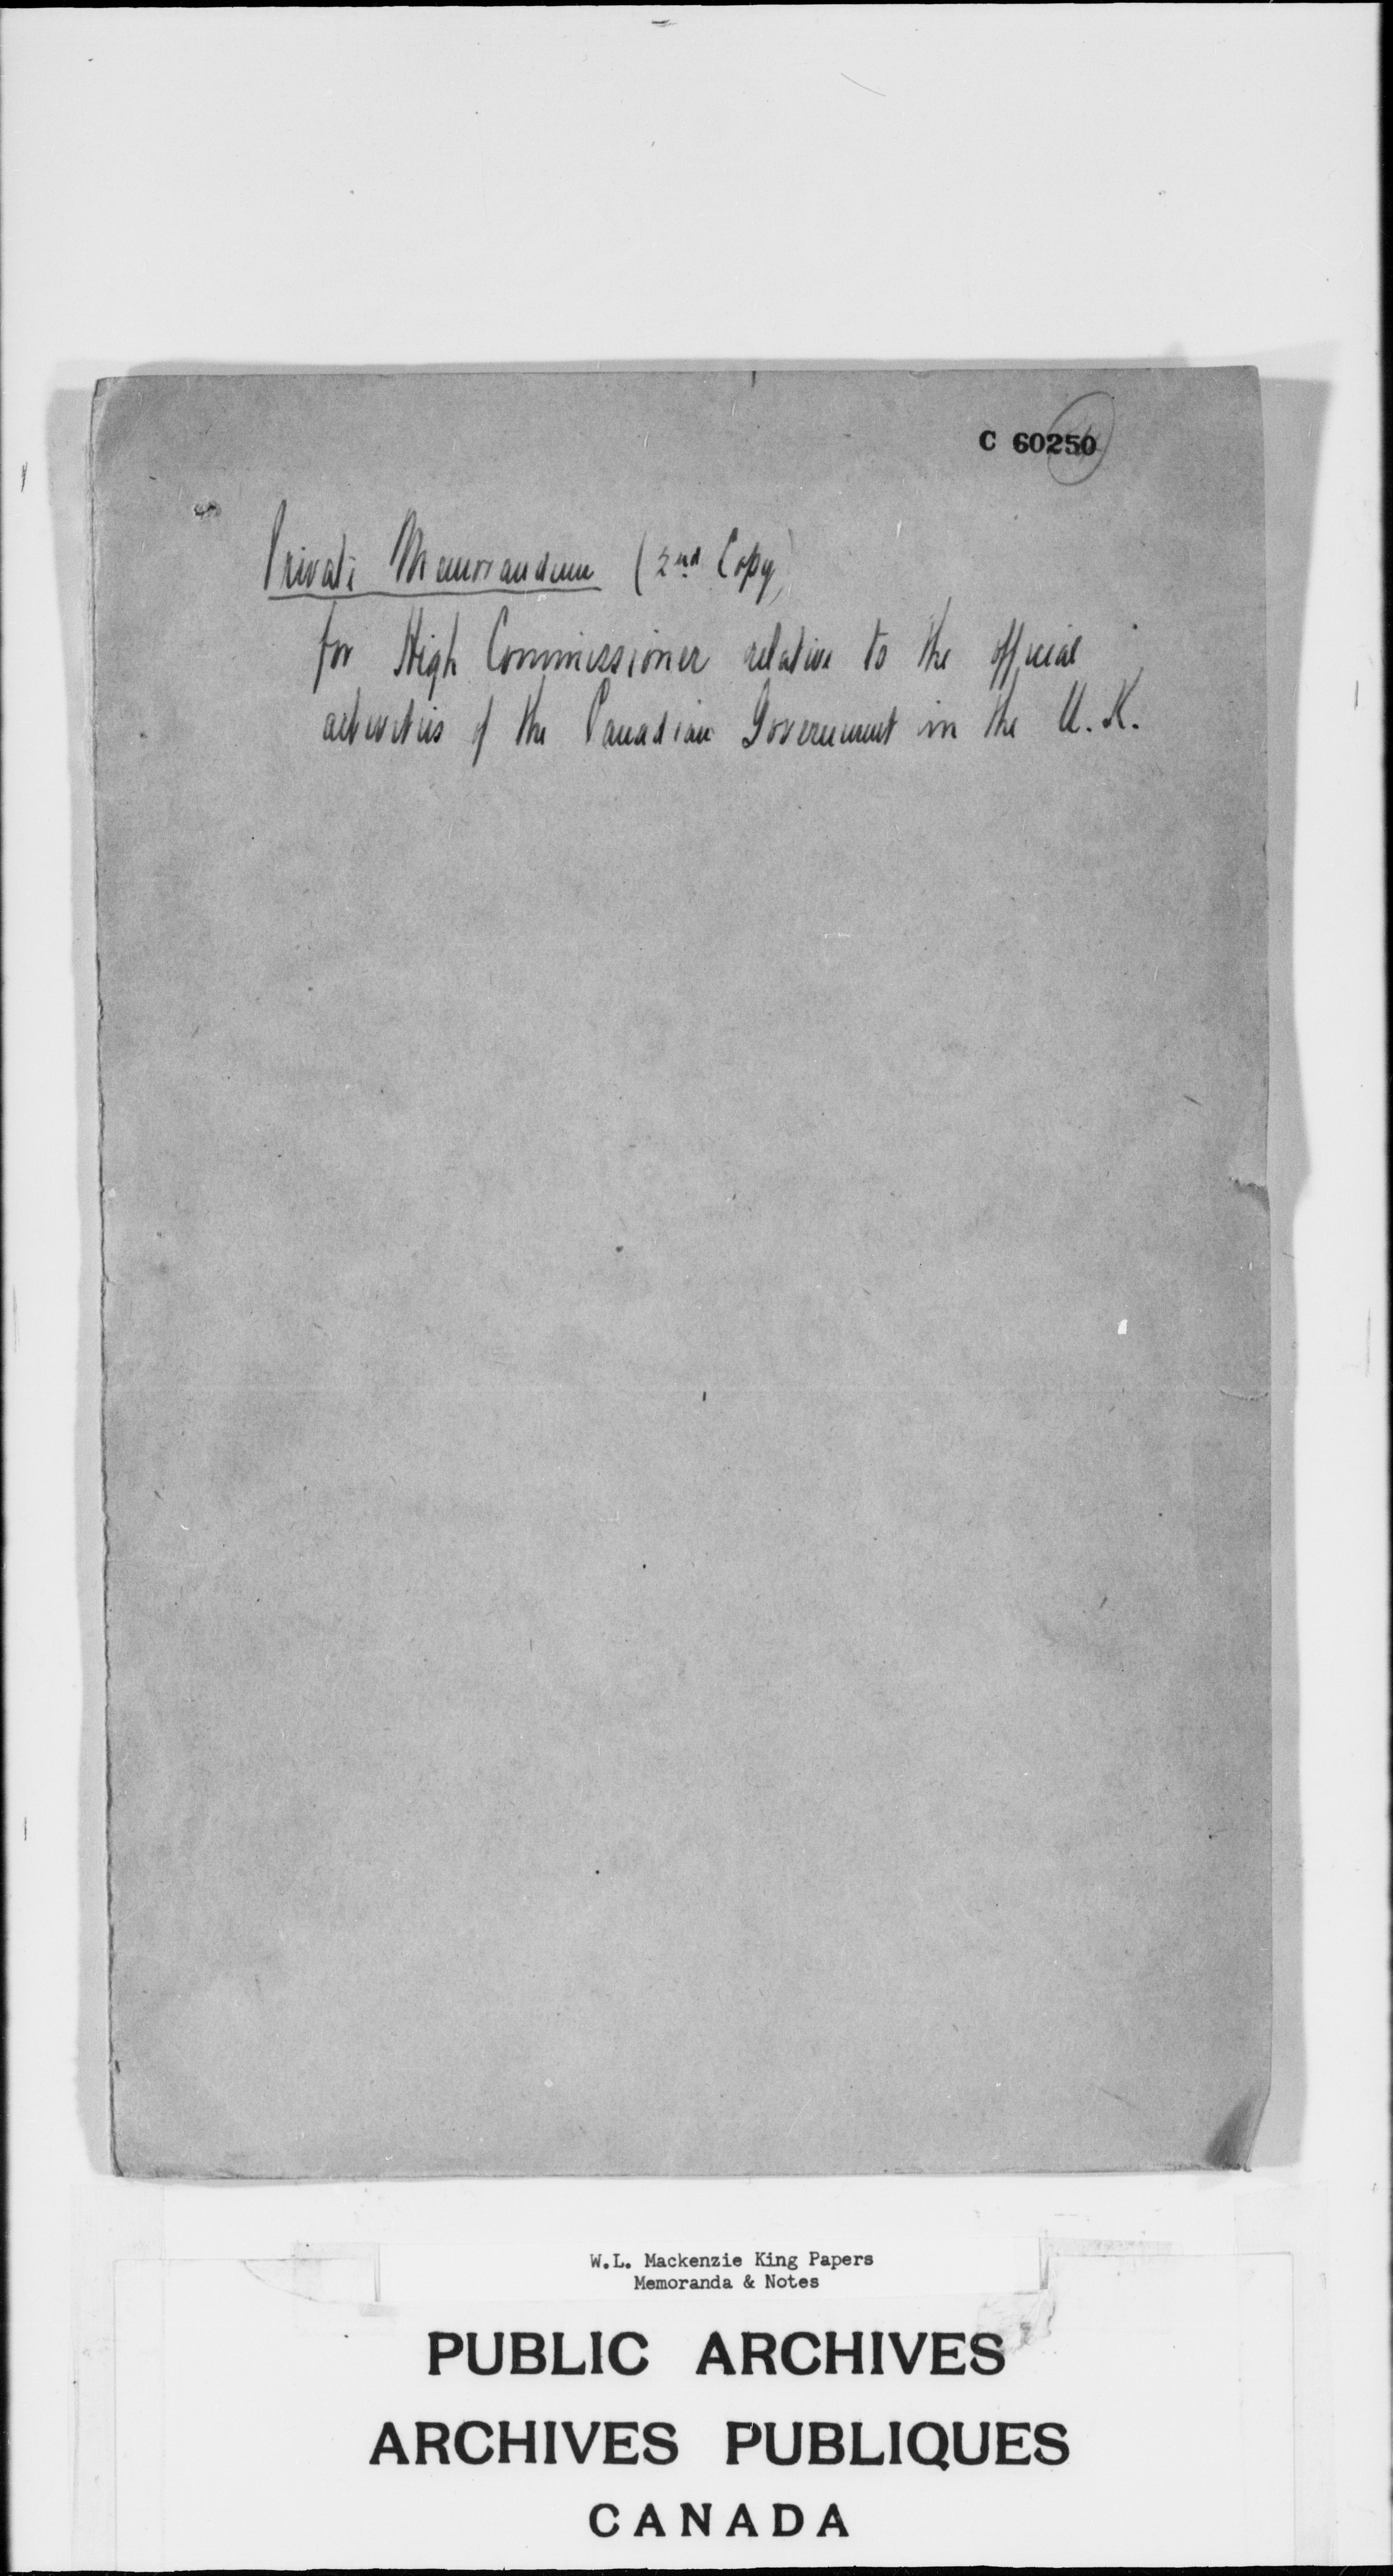 C 60250
Private Memorandum (2nd Copy)
for High Commissioner relative to the official
activities of the Canadian Government in the U.K.
W.L. Mackenzie King Papers
Memoranda & Notes
PUBLIC ARCHIVES
ARCHIVES PUBLIQUES
CANADA